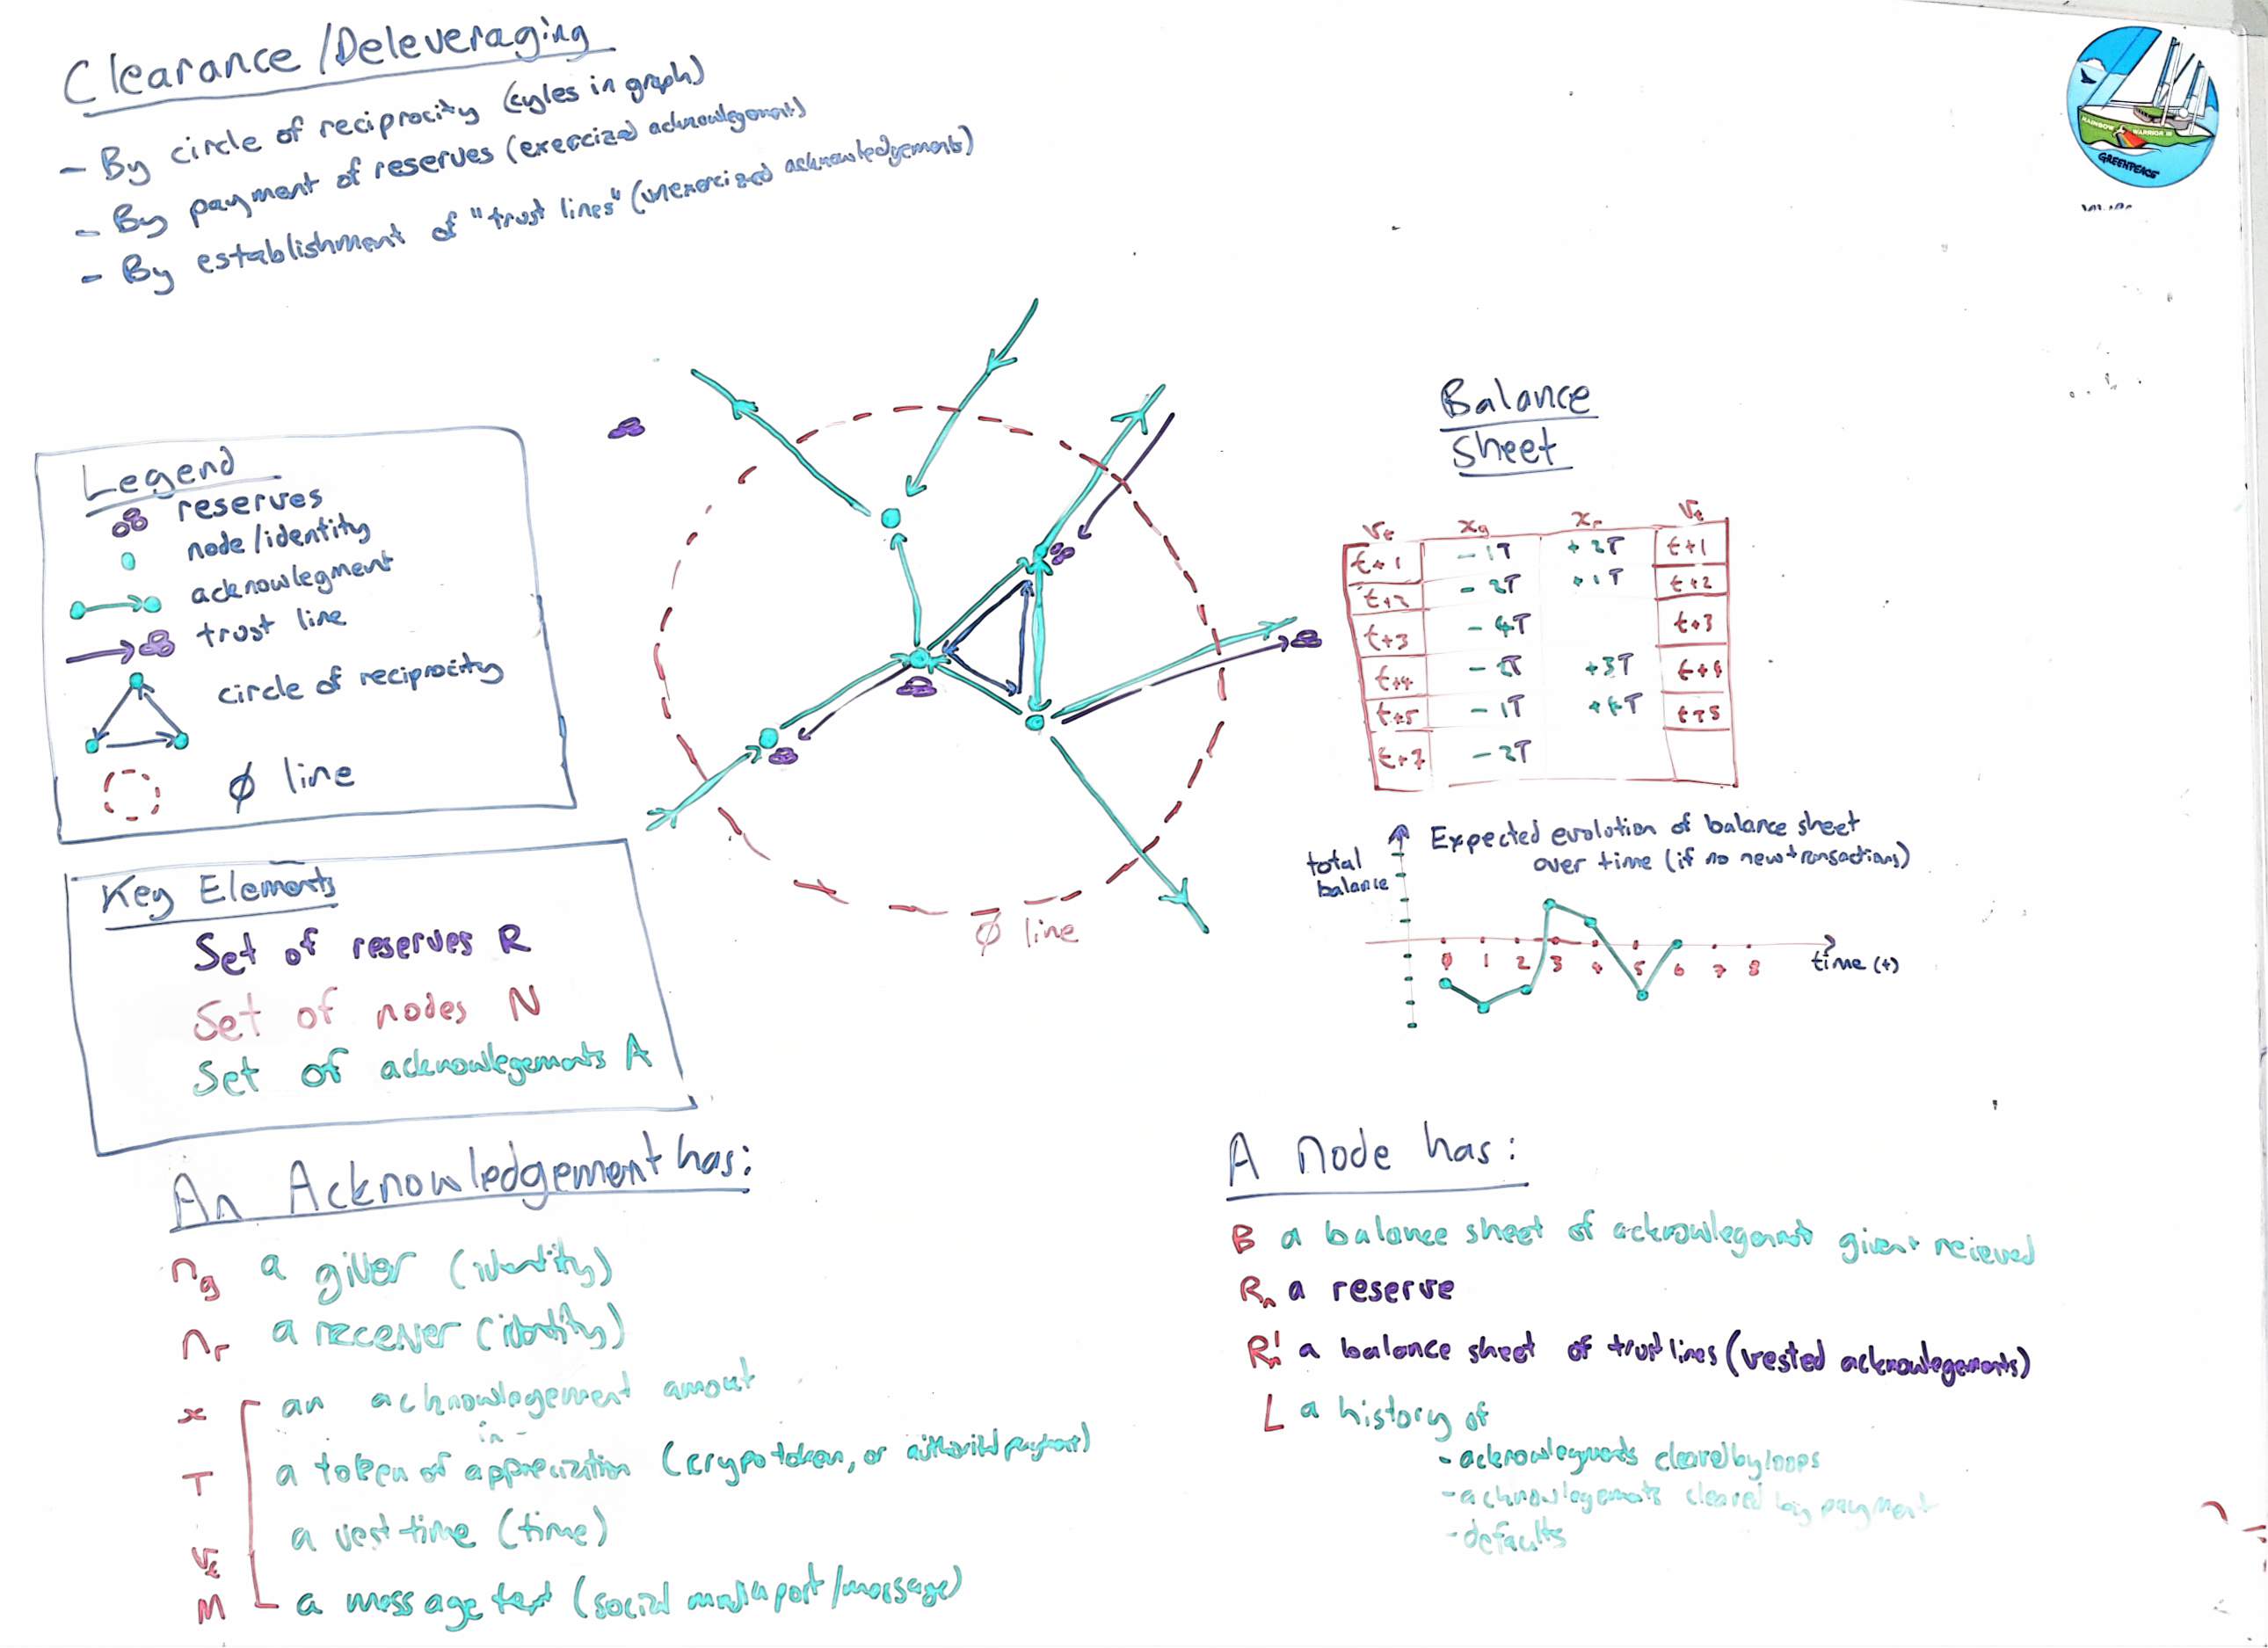 Clearance/Deleveraging
- By circle of reciprocity (cyles in graph)
- By payment of reserves (exercized acknowlegements)
- By establishment of "trust lines" (unexercized acknowledgements)
RAINBOW WARRIOR III
GREENPEACE
Legend
reserves
node/identity
acknowlegment
trust line
circle of reciprocity
ϕ line
Key Elements
Set of reserves R
Set of nodes N
Set of acknowlegements A
ϕ line
Balance
Sheet
Vt xg xr Vt
t+1 -1T +2T t+1
t+2 -2T +1T t+2
t+3 -4T t+3
t+4 +3T t+4
t+5 -1T t+5
t+7 -2T
Expected evolution of balance sheet
over time (if no new transactions)
total
balance
0 1 2 3 4 5 6 7 8
time (t)
An Acknowledgement has:
ng a giver (identity)
nr a receiver (identity)
x an acknowlegement amout
in -
T a token of appreciation (crypo token, or payment)
Vt a vest time (time)
M a message text (social media post/message)
A node has:
B a balance sheet of acknowlegement given + recieved
Rn a reserve
R'n a balance sheet of trust lines (vested acknowlegements)
L a history of
- acknowlegments cleared by loops
- acknowlegements cleared by payment
- defaults